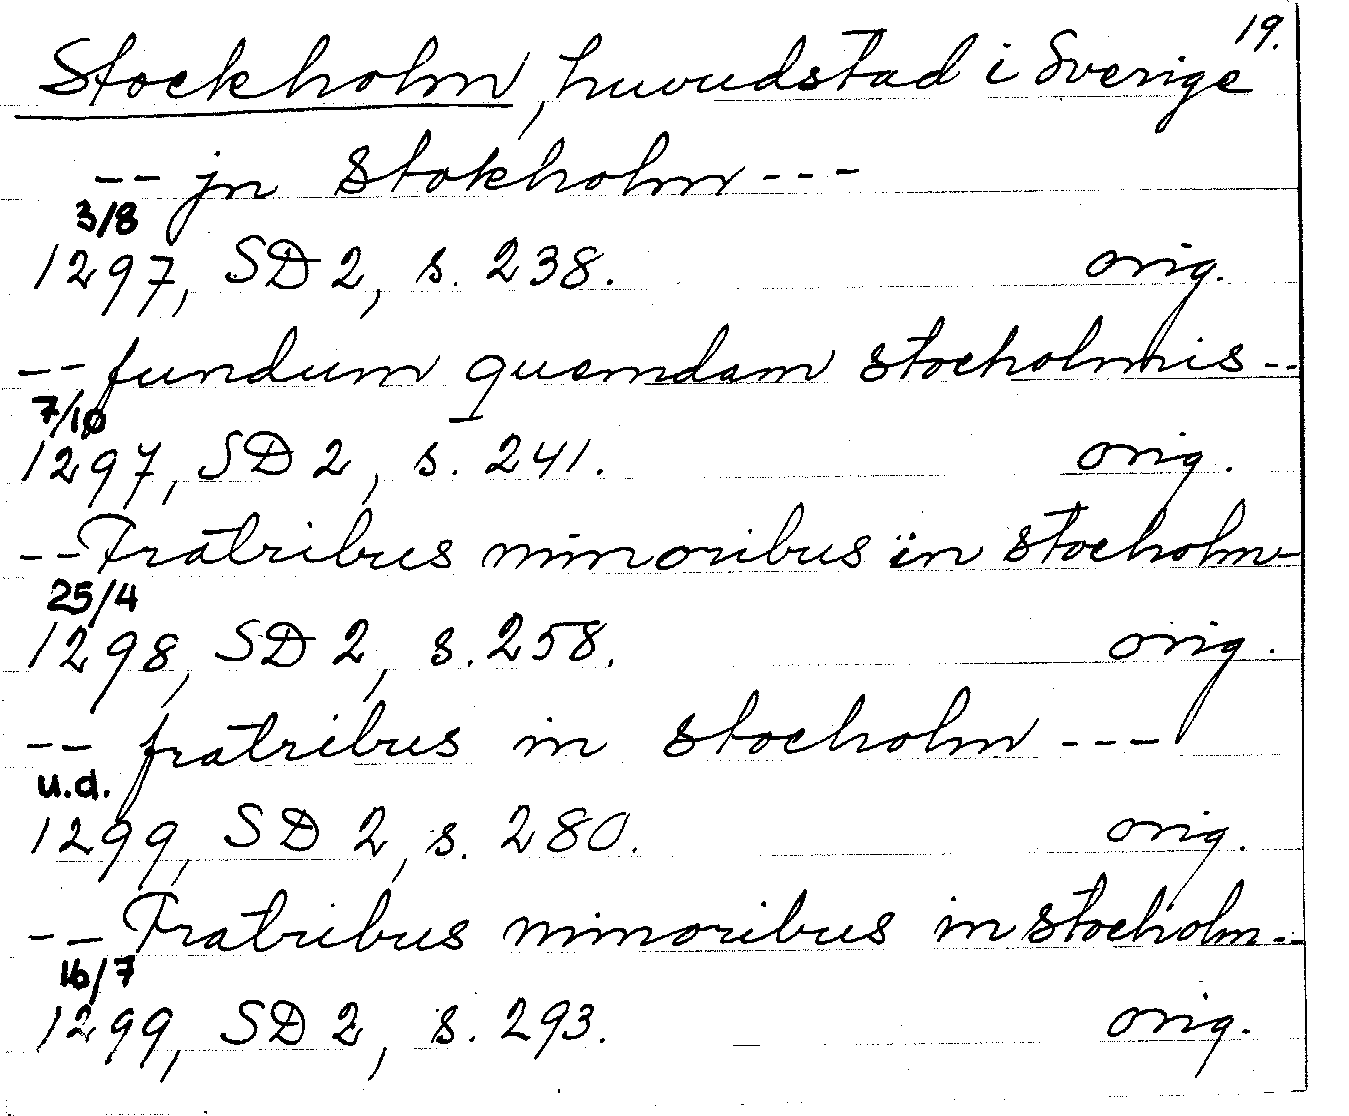 19.
Stockholm, huvudstad i Sverige
-- jn Stokholm ---
3/8
1297, SD 2, s. 238. orig.
-- fundum quemdam stocholmis --
7/10
1297, SD 2, s. 241. orig.
-- Fratribus minoribus in stocholm-
25/4
1298, SD 2, s. 258. orig.
-- fratribus in stocholm ---
u.d.
1299, SD 2, s. 280. orig.
-- Fratribus minoribus in stocholm --
16/7
1299, SD 2, s. 293. orig.